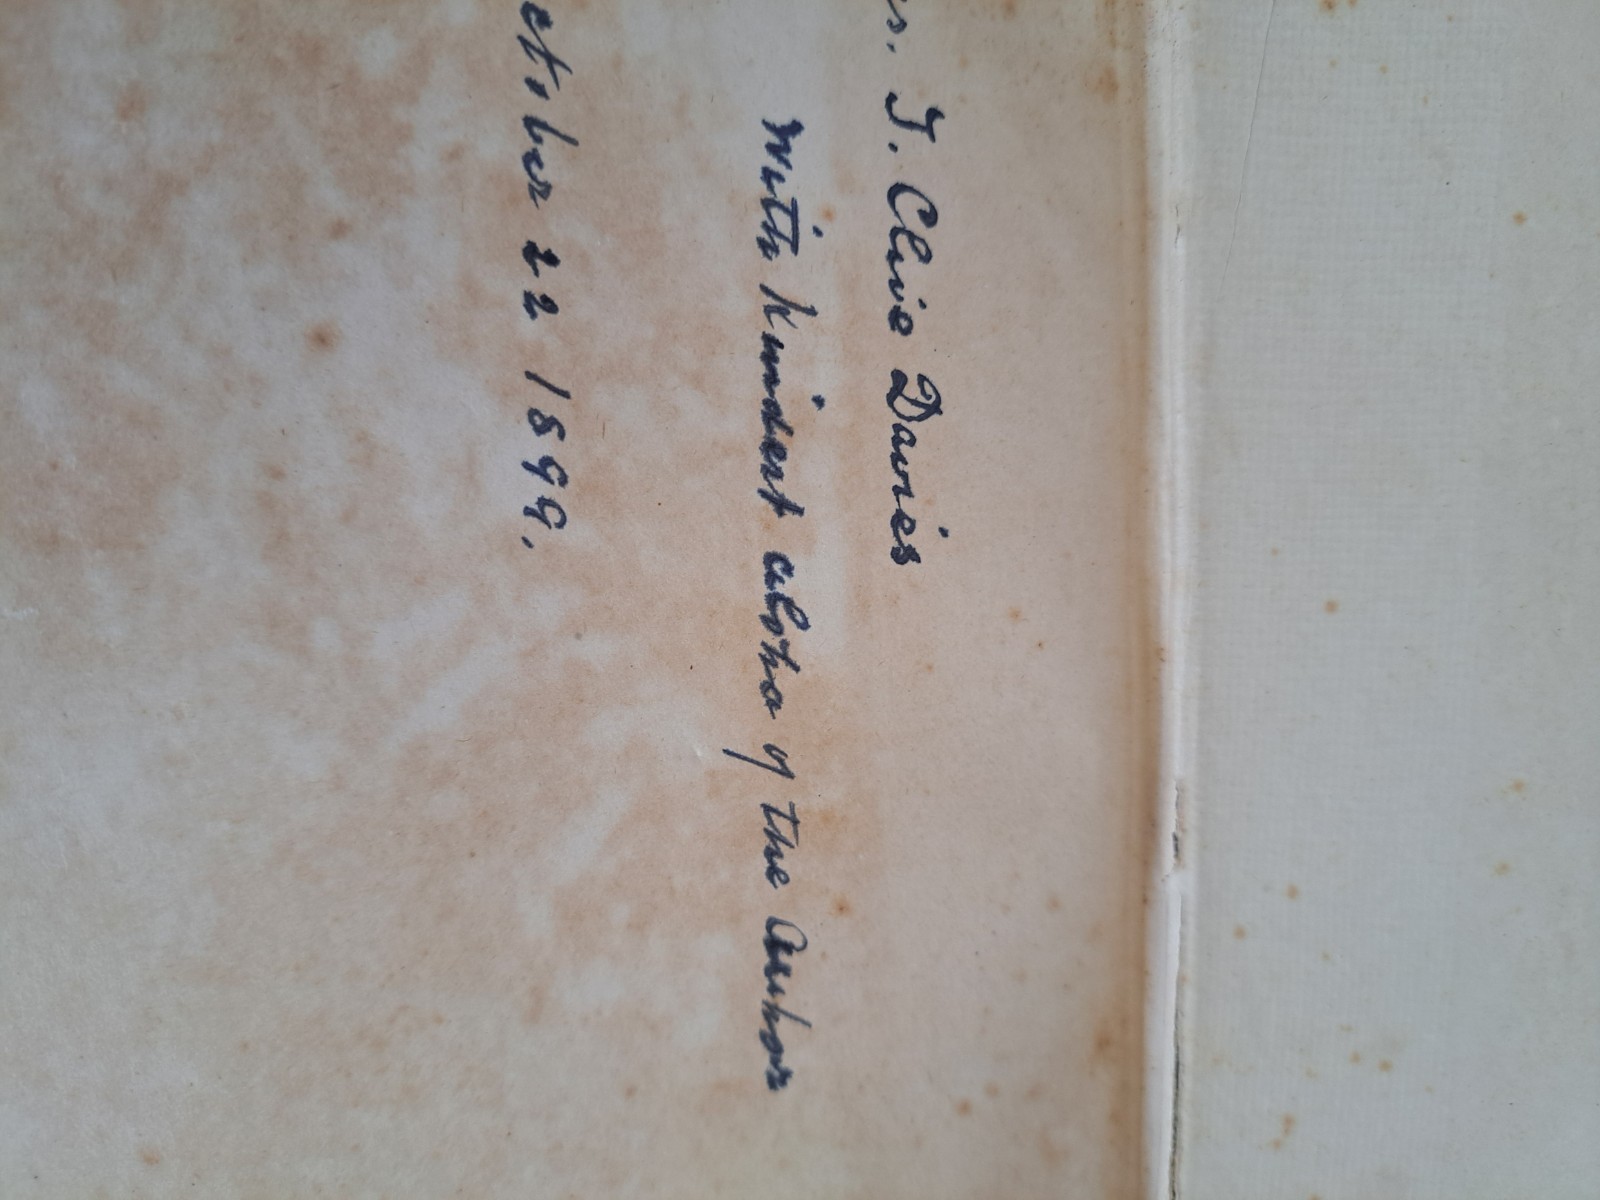 s. T. Clive Davies
With kindest aloha of the Author
ctober 22 1899.